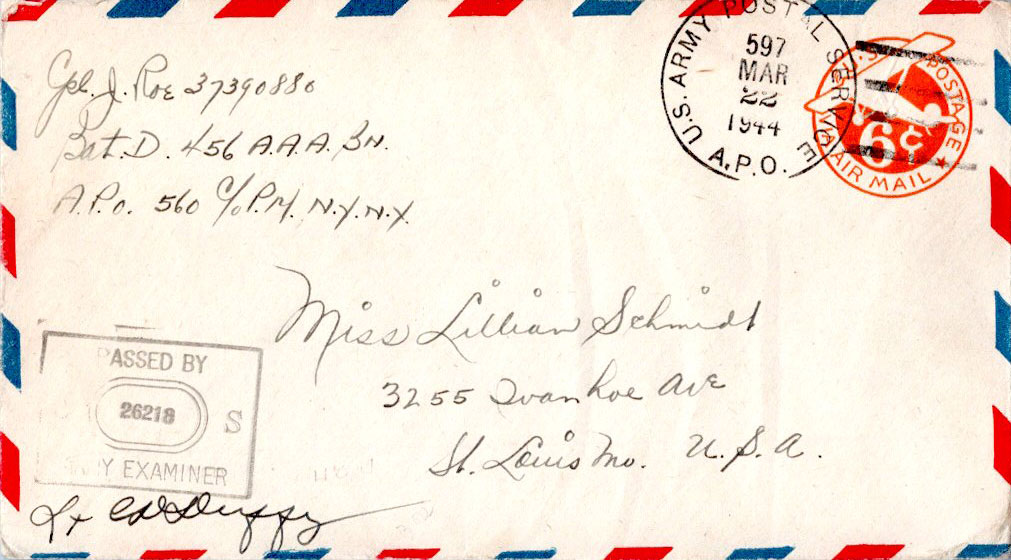 Cpl. J. Roe 37390880
Bat. D. 456 A.A.A. Bn.
A.P.O. 560 C/o P.M. N.Y. N.Y.
U.S. ARMY POSTAL SERVICE
597
MAR
22
1944
A.P.O.
U.S. POSTAGE
6¢
VIA AIR MAIL
Miss Lillian Schmidt
3255 Ivanhoe Ave
St. Louis Mo. U.S.A.
PASSED BY
26218 S
Y EXAMINER
Lt Duffy